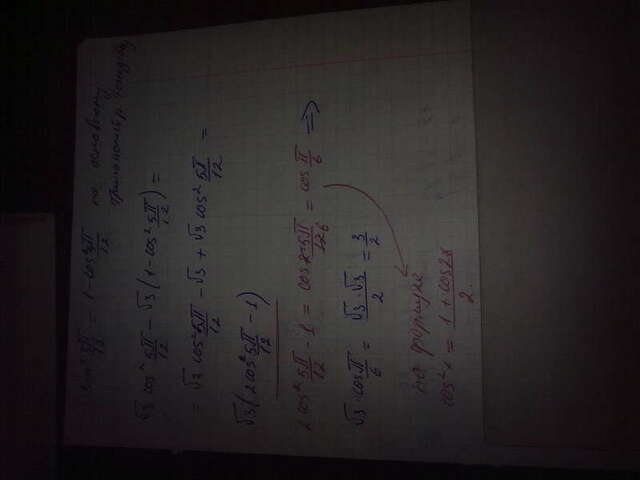 sin² 5π/12 = 1-cos² 5π/12 по основному
тригонометр. тождеству
√3 cos² 5π/12 - √3 (1-cos² 5π/12) =
= √3 cos² 5π/12 - √3 + √3 cos² 5π/12 =
√3 (2cos² 5π/12 - 1)
2cos² 5π/12 - 1 = cos 2·5π/12 6 = cos π/6 =>
√3 · cos π/6 = √3·√3/2 = 3/2
по формуле
cos²x = 1+cos2x/2